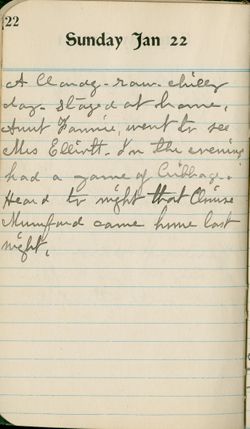 22
Sunday Jan 22
A Cloudy - raw - chilly
day. Stayed at home.
Aunt Fannie, went to see
Mrs Elliott. In the evening
had a game of Cribbage.
Heard to night that
Mumford came home last
night.